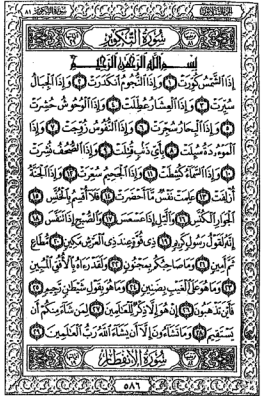 سورة التكوير
بسم الله الرحمن الرحيم
إذا الشمس كورت ١ وإذا النجوم انكدرت ٢ وإذا الجبال
سيرت ٣ وإذا العشار عطلت ٤ وإذا الوحوش حشرت
٥ وإذا البحار سجرت ٦ وإذا النفوس زوجت ٧ وإذا
الموءدة سئلت ٨ بأي ذنب قتلت ٩ وإذا الصحف نشرت
١٠ وإذا السماء كشطت ١١ وإذا الجحيم سعرت ١٢ وإذا الجنة
أزلفت ١٣ علمت نفس ما أحضرت ١٤ فلا أقسم بالخنس ١٥
الجوار الكنس ١٦ والليل إذا عسعس ١٧ والصبح إذا تنفس ١٨
إنه لقول رسول كريم ١٩ ذي قوة عند ذي العرش مكين ٢٠ مطاع
ثم أمين ٢١ وما صاحبكم بمجنون ٢٢ ولقد رءاه بالأفق المبين
٢٣ وما هو على الغيب بضنين ٢٤ وما هو بقول شيطان رجيم ٢٥
فأين تذهبون ٢٦ إن هو إلا ذكر للعالمين ٢٧ لمن شاء منكم أن
يستقيم ٢٨ وما تشاءون إلا أن يشاء الله رب العالمين ٢٩
سورة الانفطار
٥٨٦